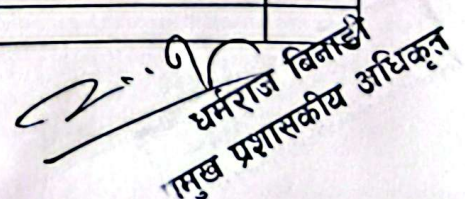 धर्मराज बिनाडी
प्रमुख प्रशासकीय अधिकृत